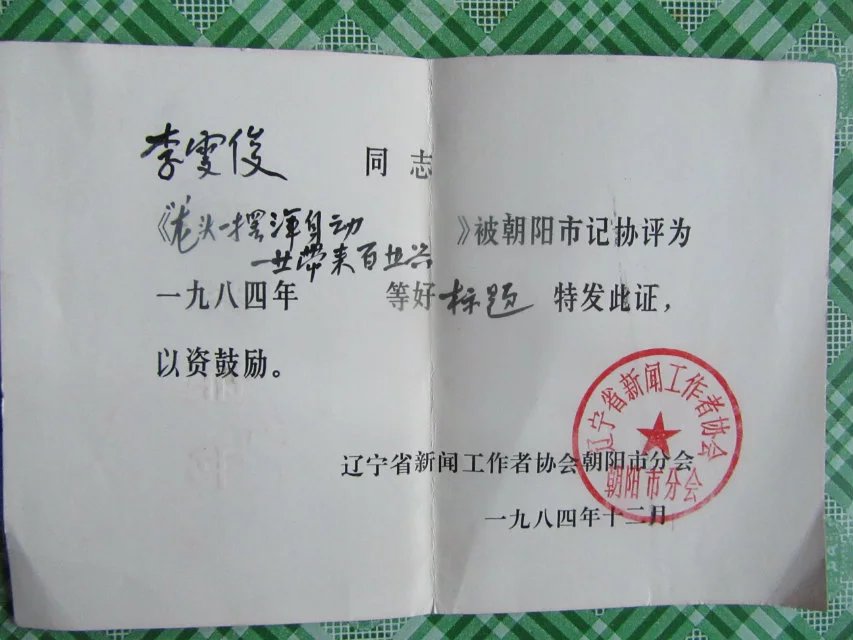 李雯俊 同志
《龙头一摆浑身动
一业带来百业兴 》被朝阳市记协评为
一九八四年 等好标题 特发此证，
以资鼓励。
辽宁省新闻工作者协会朝阳市分会
一九八四年十二月
辽宁省新闻工作者协会
朝阳市分会